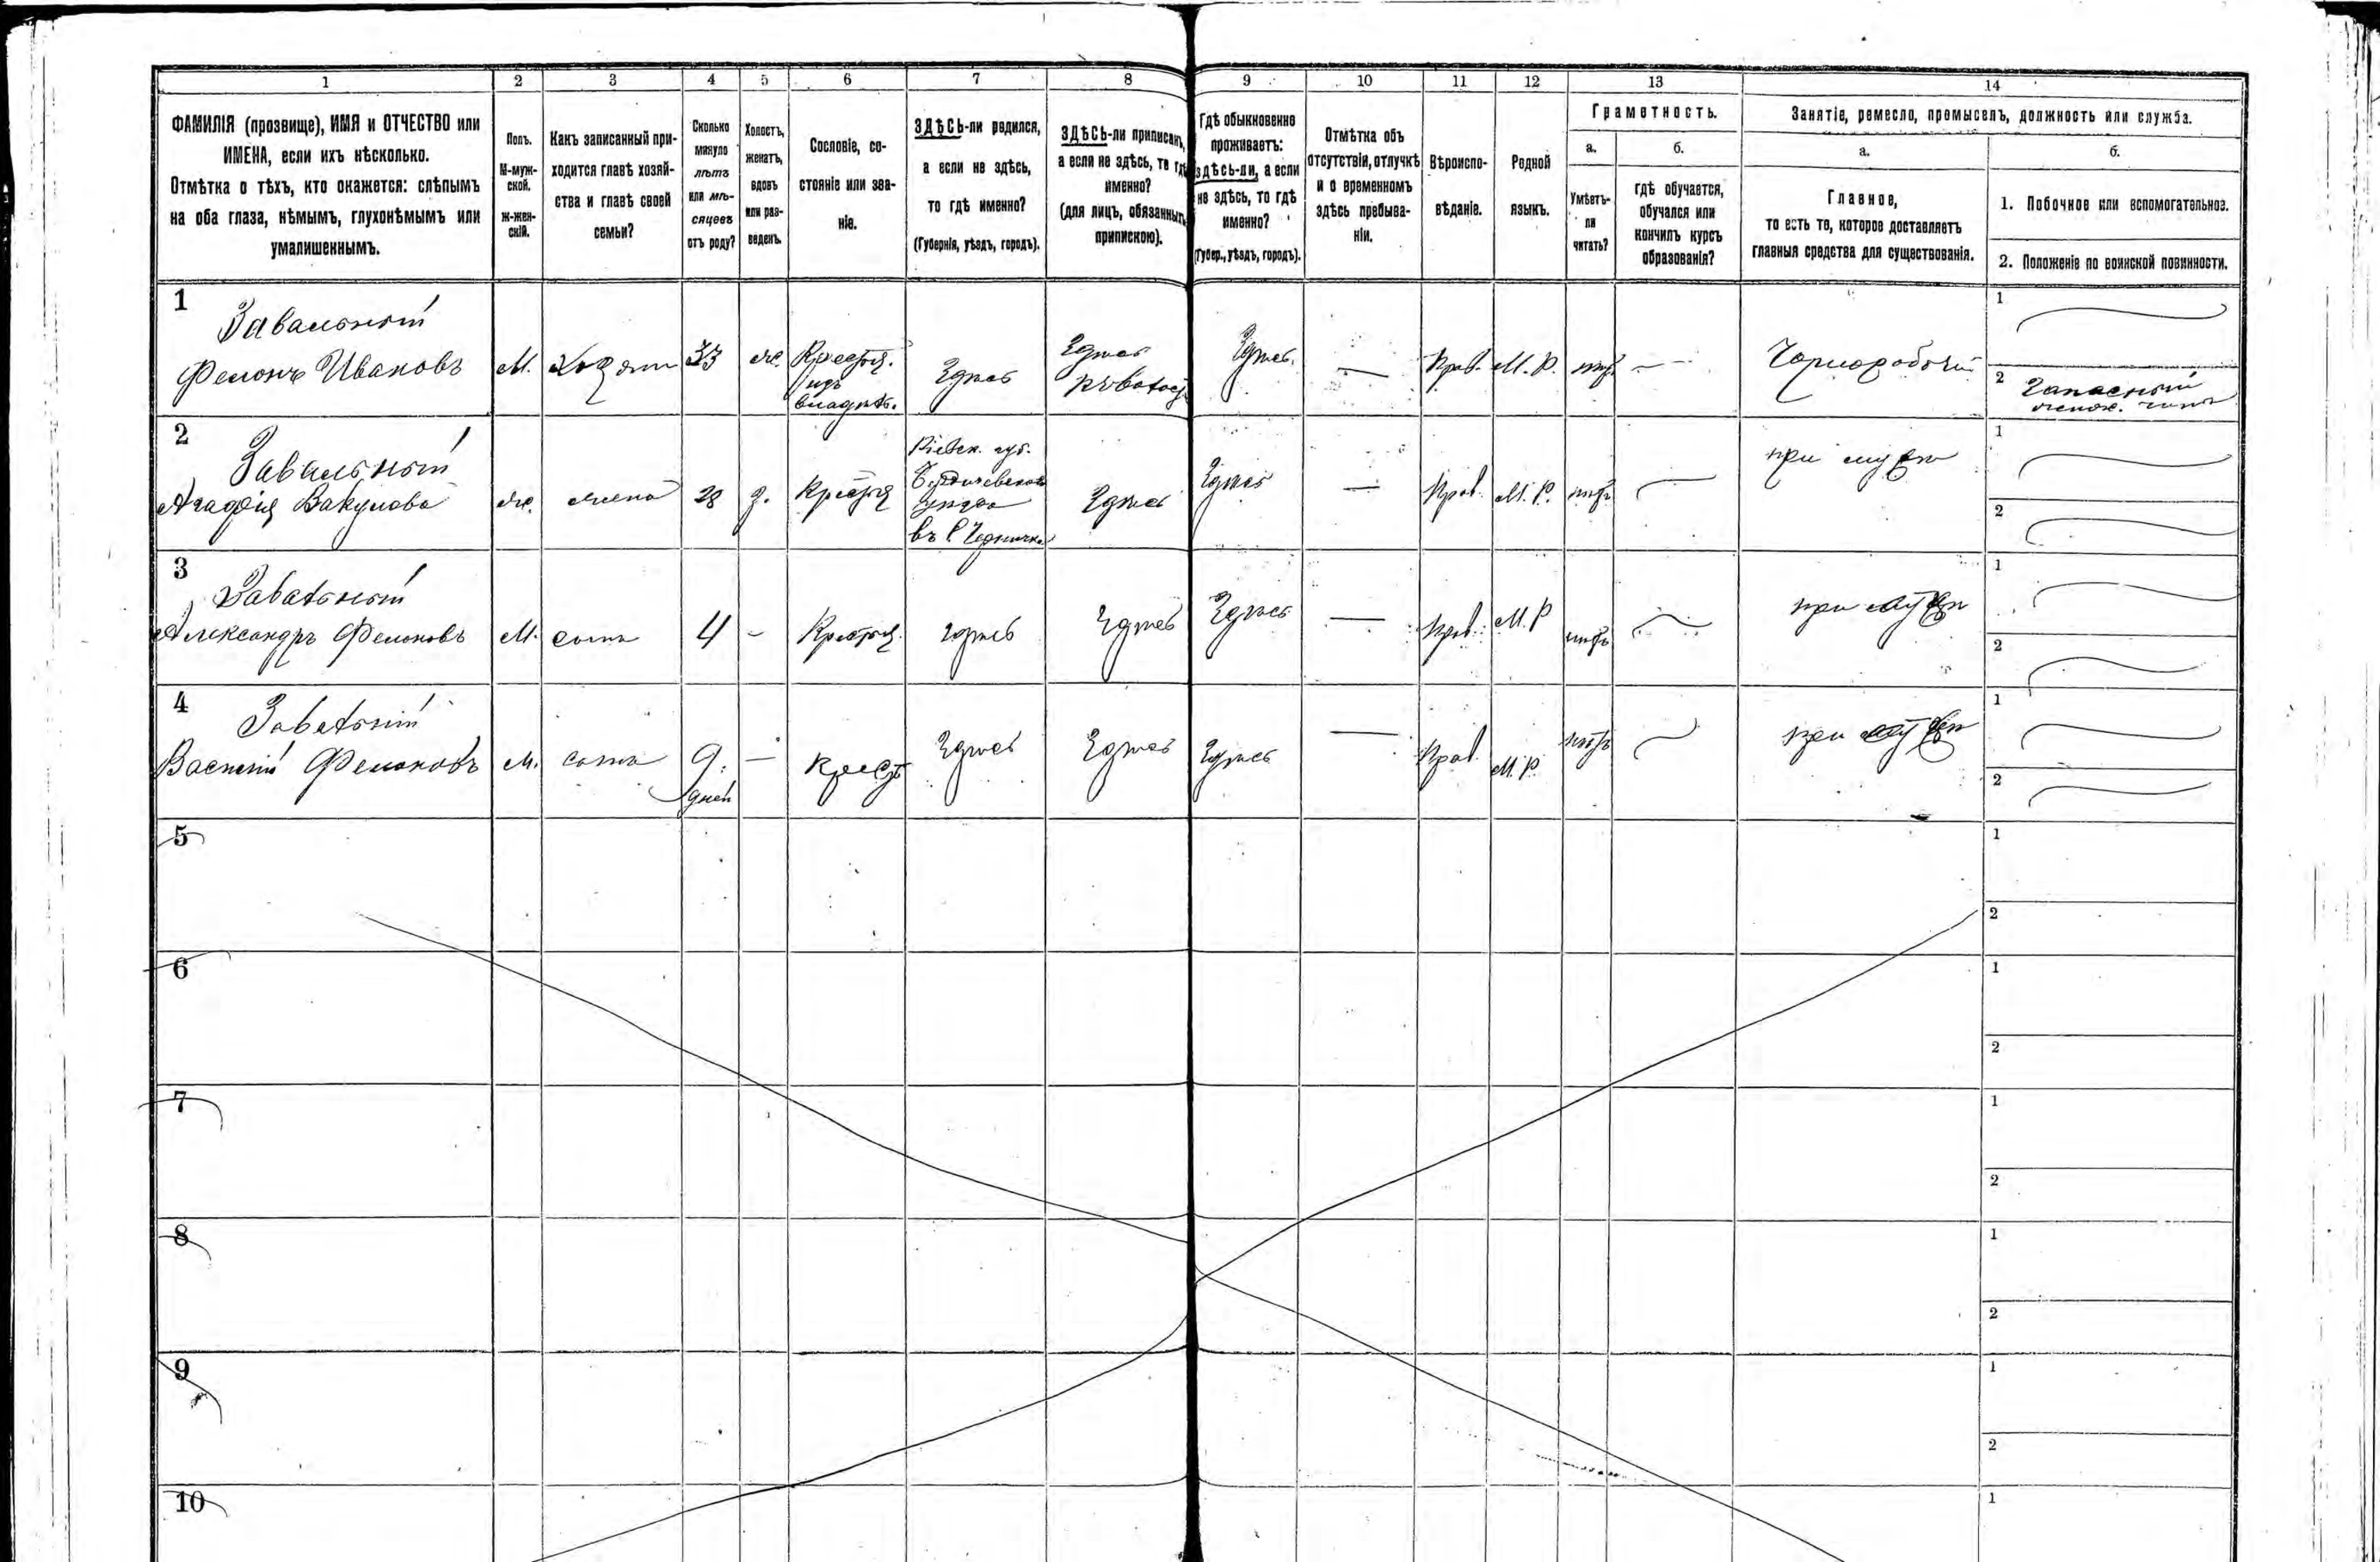 1 2 3 4 5 6 7 8 9 10 11 12 13 14
ФАМИЛІЯ (прозвище), ИМЯ и ОТЧЕСТВО или
ИМЕНА, если ихъ нѣсколько.
Отмѣтка о тѣхъ, кто окажется: слѣпымъ
на оба глаза, нѣмымъ, глухонѣмымъ или
умалишеннымъ.
Полъ.
М-муж-
ской.
Ж-жен-
скій.
Какъ записанный при-
ходится главѣ хозяй-
ства и главѣ своей
семьи?
Сколько
минуло
лѣтъ
или мѣ-
сяцевъ
отъ роду?
Холостъ,
женатъ,
вдовъ
или раз-
веденъ.
Сословіе, со-
стояніе или зва-
ніе.
ЗДѢСЬ-ли родился,
а если не здѣсь,
то гдѣ именно?
(Губернія, уѣздъ, городъ).
ЗДѢСЬ-ли приписанъ,
а если не здѣсь, то гдѣ
именно?
(для лицъ, обязанныхъ
припискою).
Гдѣ обыкновенно
проживаетъ:
здѣсь-ли, а если
не здѣсь, то гдѣ
именно?
(Губер., уѣздъ, городъ).
Отмѣтка объ
отсутствіи, отлучкѣ
и о временномъ
здѣсь пребыва-
ніи.
Вѣроиспо-
вѣданіе.
Родной
языкъ.
Грамотность.
а.
Умѣетъ-
ли
читать?
б.
гдѣ обучается,
обучался или
кончилъ курсъ
образованія?
Занятіе, ремесло, промыселъ, должность или служба.
а.
Главное,
то есть то, которое доставляетъ
главныя средства для существованія.
б.
1. Побочное или вспомогательное.
2. Положеніе по воинской повинности.
1
Завальный
Филонъ Ивановъ
М.
Хозяин
33
ж.
Крестья.
изъ
владѣл.
Здѣсь
Здѣсь
Здѣсь
—
Прав.
М. Р.
нѣтъ
—
Чорноробочій
1
2 Запасный
нижн. чинъ
2
Завальный
Агафія Вакулова
ж.
жена
28
з.
Крестья
Кіевск. губ.
Бердичевскаго
уѣзда
Здѣсь
Здѣсь
—
Прав.
М. Р.
нѣтъ
при мужѣ
1
2
3
Завальный
Александръ Филоновъ
М.
сынъ
4
-
Крестья.
здѣсь
Здѣсь
Здѣсь
—
Прав.
М. Р
нѣтъ
при
1
2
4
Завальній
Василій Филоновъ
М.
сынъ
9.
дней
—
Крест
Здѣсь
Здѣсь
Здѣсь
—
Прав.
М. Р.
нѣтъ
при
1
2
5
1
2
6
1
2
7
1
2
8
1
2
9
1
2
10
1